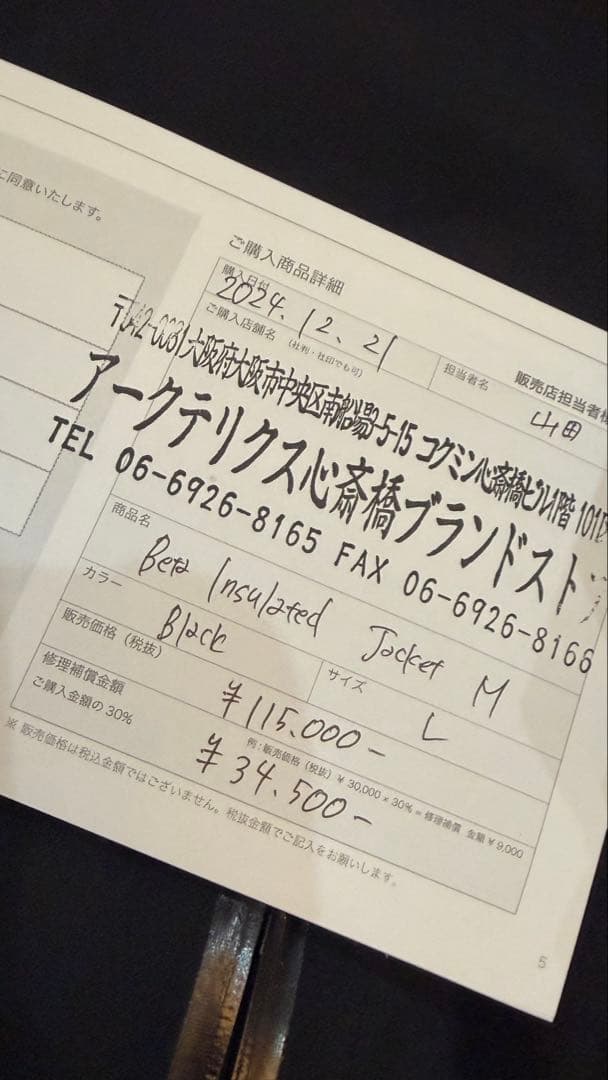 に同意いたします。
ご購入商品詳細
購入日付
2024.12.21
ご購入店舗名 (社判・社印でも可)
担当者名
販売店担当者様
山田
〒542-0081 大阪府大阪市中央区南船場3-5-15 コクミン心斎橋ビル1階 101
アークテリクス心斎橋ブランドスト
TEL 06-6926-8165 FAX 06-6926-8166
商品名
Beta Insulated Jacket M
カラー
Black
サイズ
L
販売価格（税抜）
¥115.000-
修理補償金額
ご購入金額の30%
例：販売価格（税抜）¥30,000×30%＝修理補償 金額¥9,000
¥34.500-
※ 販売価格は税込金額ではございません。税抜金額でご記入をお願いします。
5